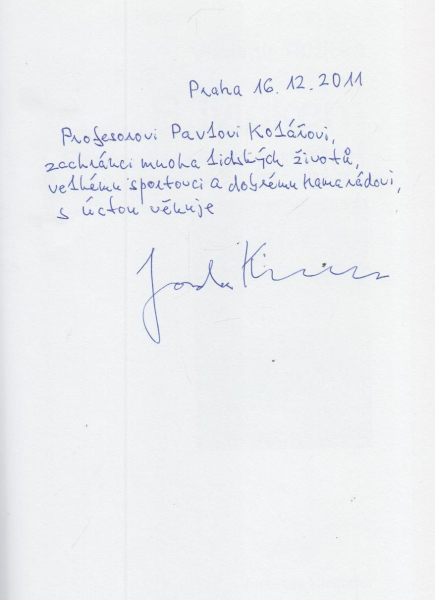 Praha 16.12.2011
Profesorovi Pavlovi Kolářovi,
zachránci mnoha lidských životů,
velkému sportovci a dobrému kamarádovi,
s úctou věnuje